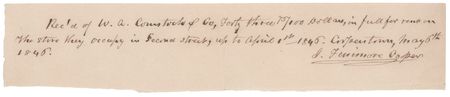 Rec'd of W. A. Comstock & Co, Forty three 75/100 Dollars, in full for rent on
the store they occupy in Second street, up to April 1st 1846. Cooperstown, May 6th
1846. J. Fenimore Cooper